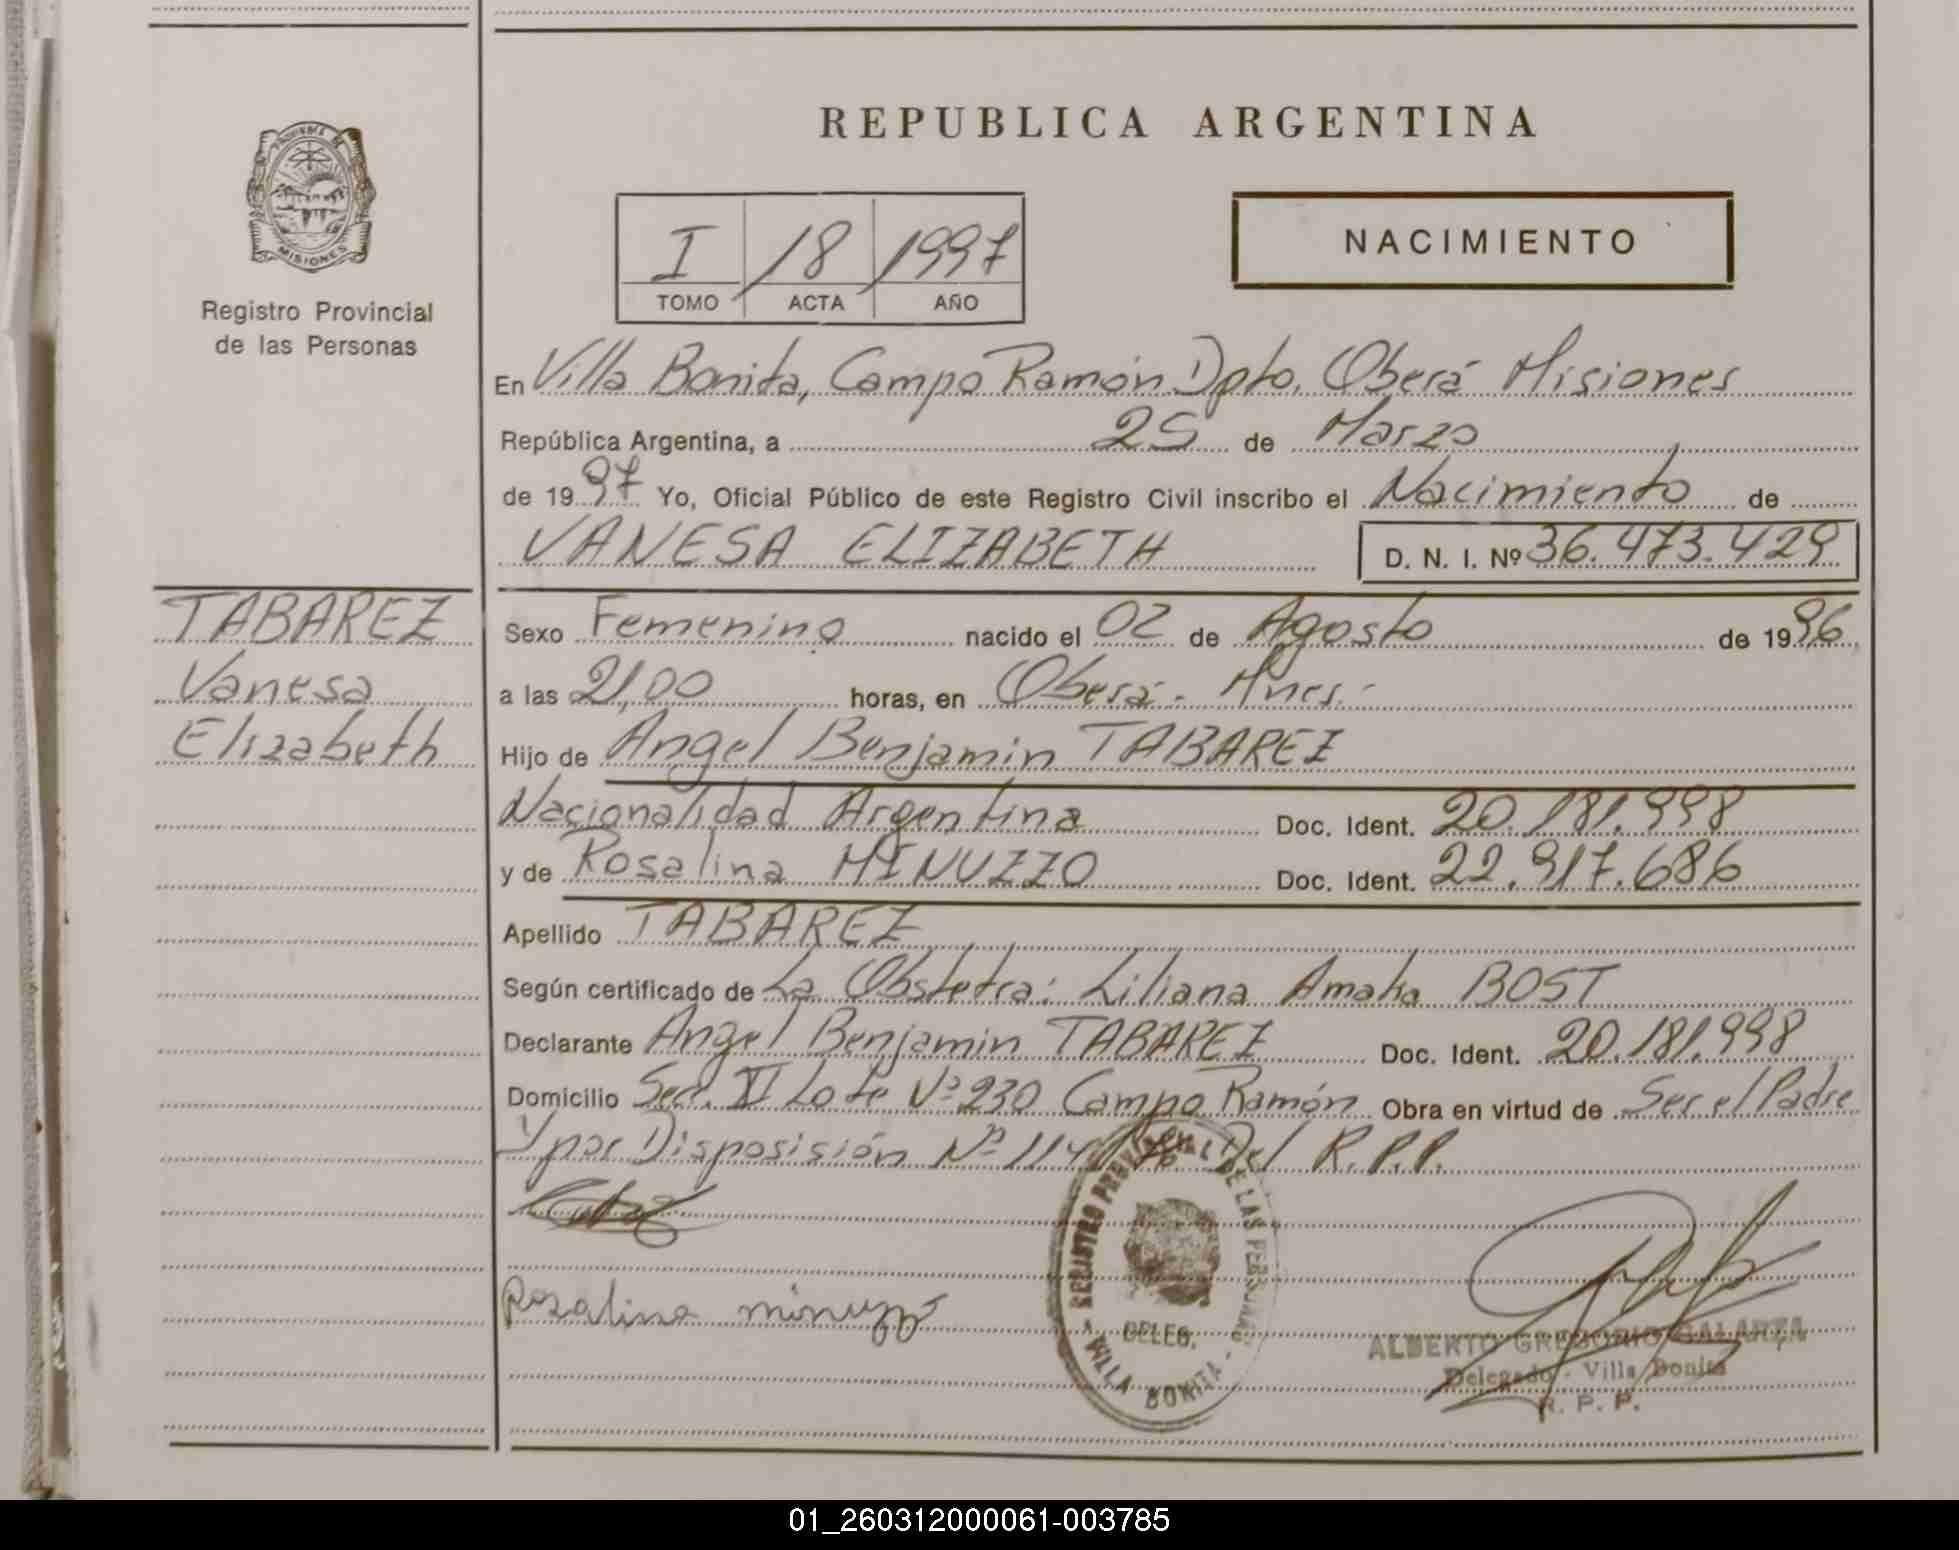 REPUBLICA ARGENTINA
PROVINCIA DE MISIONES
Registro Provincial
de las Personas
I / 18 / 1997
TOMO ACTA AÑO
NACIMIENTO
En Villa Bonita, Campo Ramón Dpto. Oberá Misiones
República Argentina, a 25 de Marzo
de 1997 Yo, Oficial Público de este Registro Civil inscribo el Nacimiento de
VANESA ELIZABETH D. N. I. Nº 36.473.429
TABAREZ
Vanesa
Elizabeth
Sexo Femenino nacido el 02 de Agosto de 1996
a las 21,00 horas, en Oberá - Mnes.
Hijo de Angel Benjamin TABAREZ
Nacionalidad Argentina Doc. Ident. 20.181.998
y de Rosalina MINUZZO Doc. Ident. 22.917.686
Apellido TABAREZ
Según certificado de La Obstetra: Liliana Amalia BOST
Declarante Angel Benjamin TABAREZ Doc. Ident. 20.181.998
Domicilio Secc. VI Lote Nº 230 Campo Ramón Obra en virtud de Ser el Padre
Y por Disposición Nº 114 Del R.P.P.
Rosalina minuzzo
REGISTRO PROVINCIAL DE LAS PERSONAS
DELEG.
VILLA BONITA
ALBERTO GREGORIO GALARZA
Delegado - Villa Bonita
R. P. P.
01_260312000061-003785